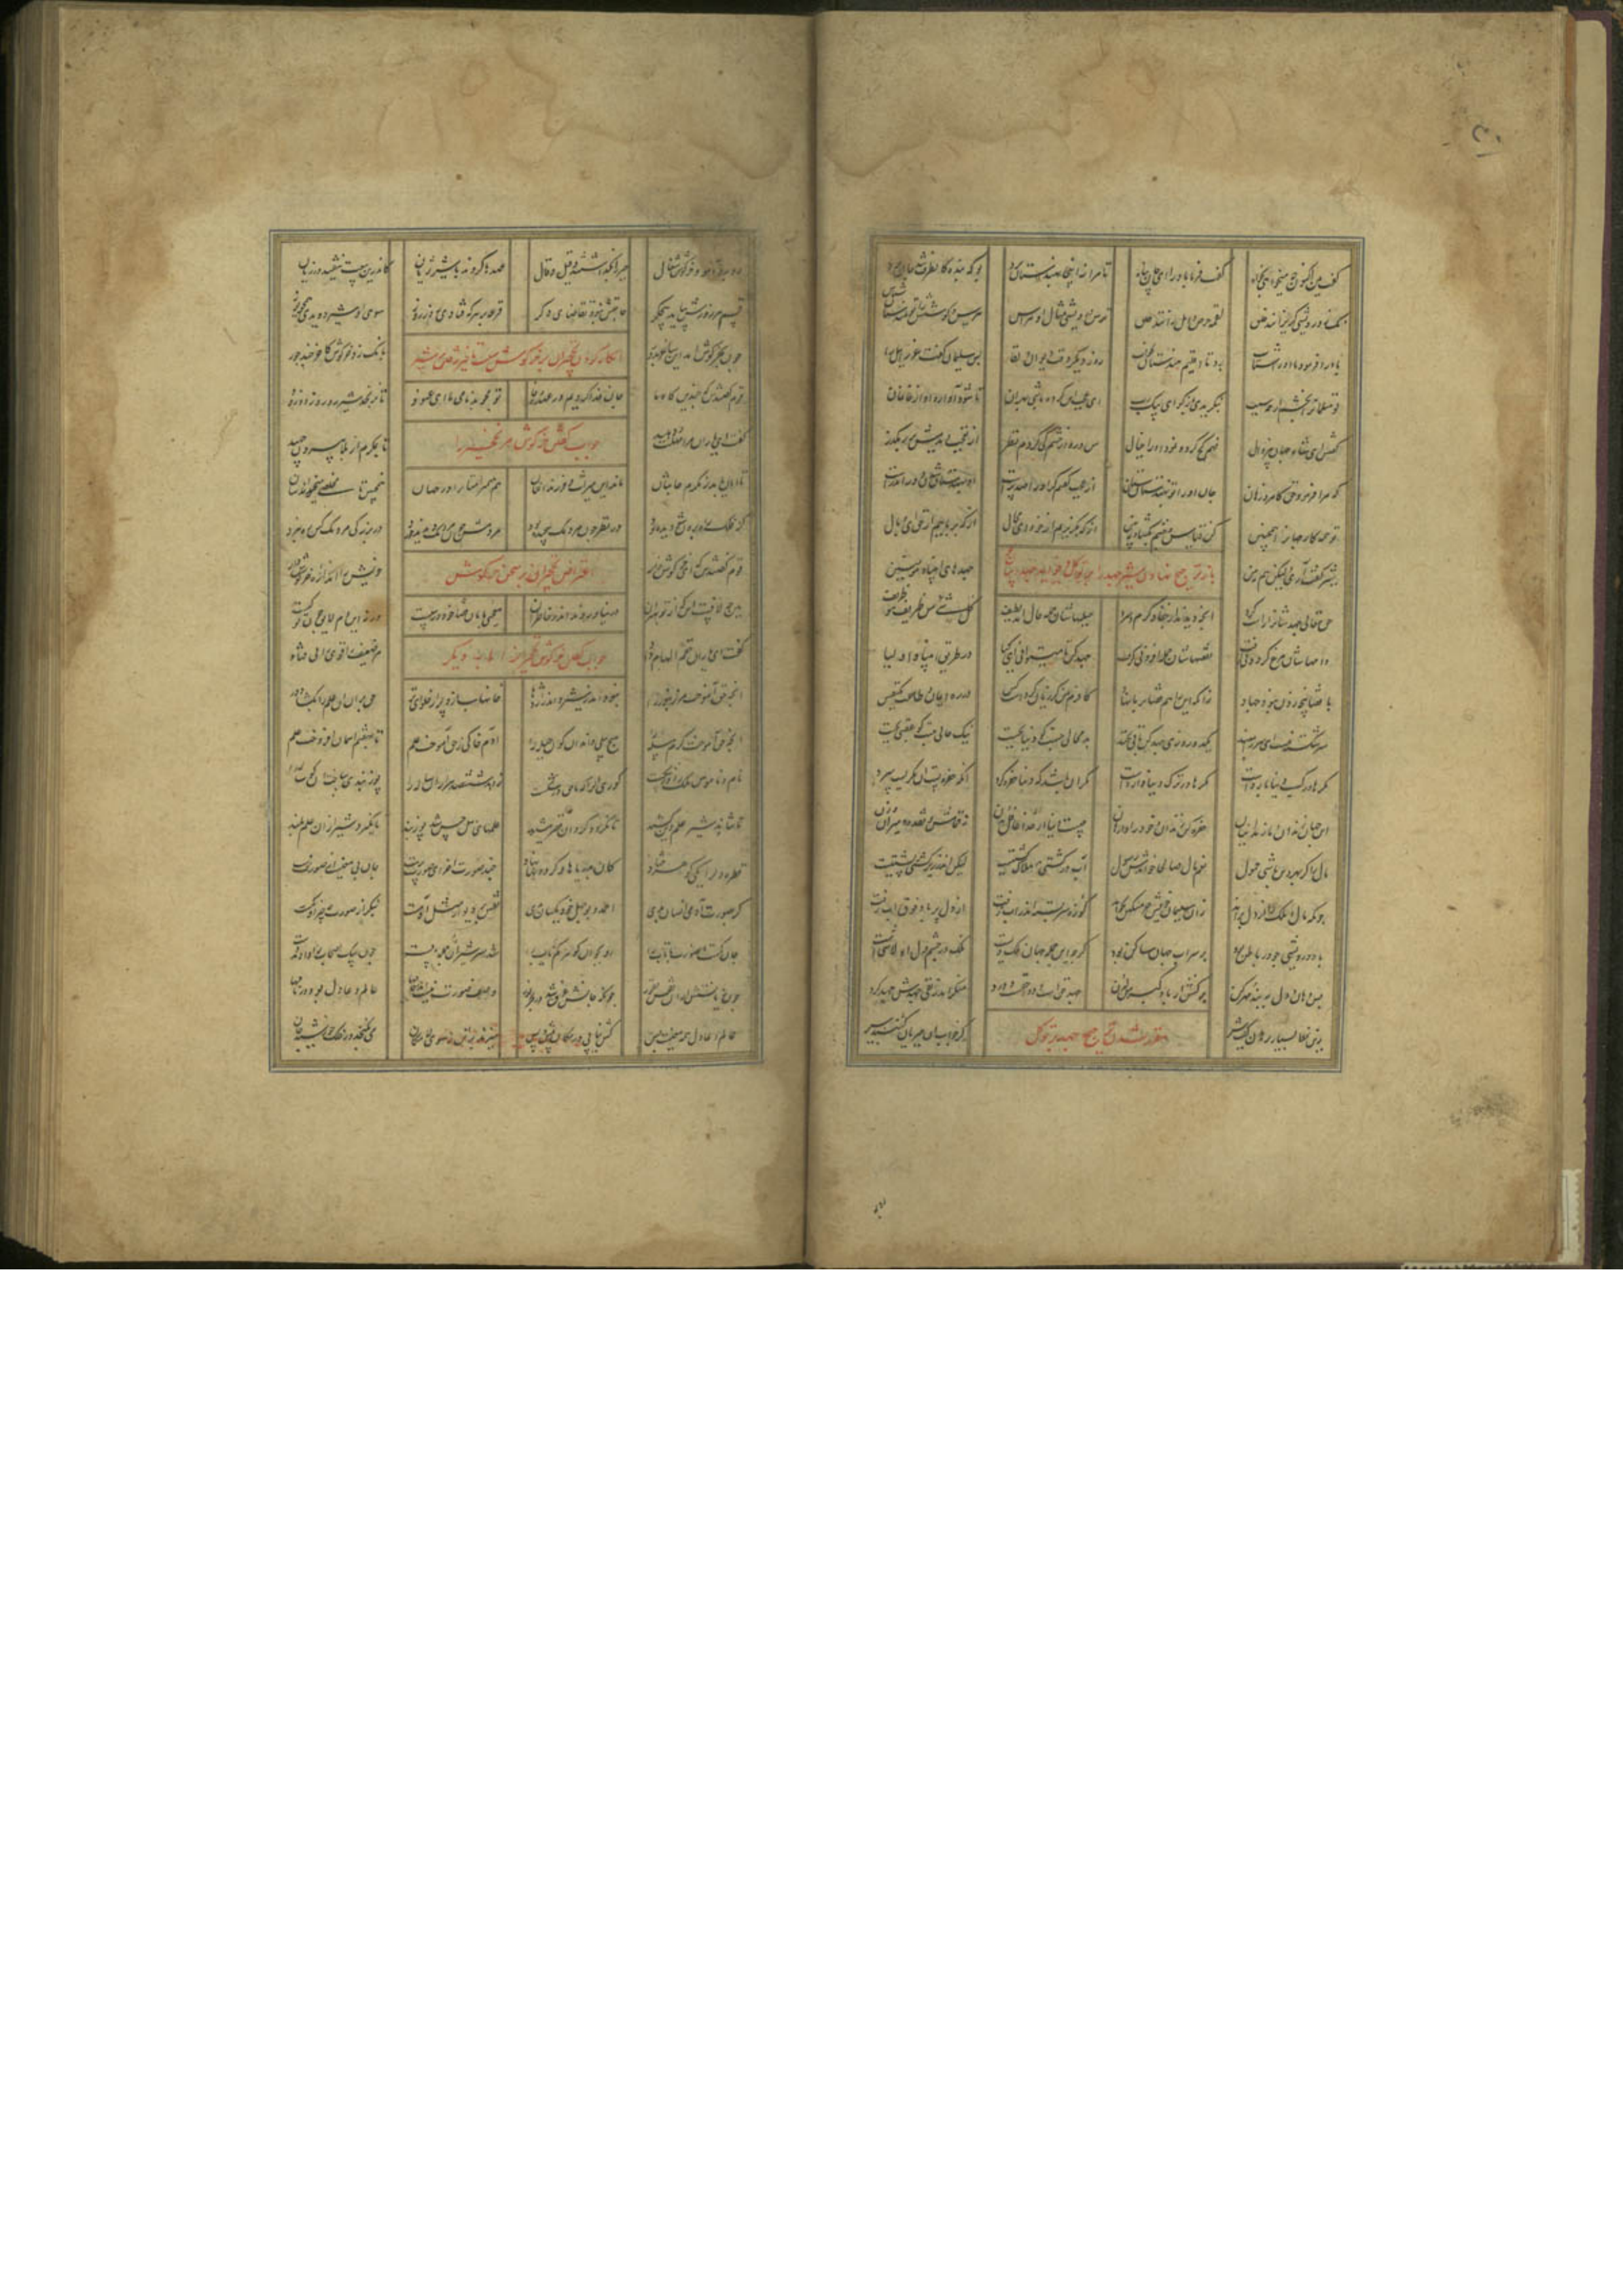 گفت هین اکنون چه میخواهی بخواه گفت فرما باد را ای جان پناه تا مرا زینجا بهندستان برد بوکه بنده کان طرف شد جان برد
نک ز درویشی گریزانند خلق لقمه حرص و امل زانند خلق ترس درویشی مثال آن هراس حرص و کوشش را تو هندستان شناس
باد را فرمود تا او را شتاب برد تا اقلیم هندستان بر آب روز دیگر وقت دیوان و لقا پس سلیمان گفت عزرائیل را
کان مسلمان را بخشم از چه سبب بنگریدی باز گو ای پیک رب ای عجب این کرده باشی بهر آن تا شود آواره او از خان و مان
گفتش ای شاه جهان بی زوال فهم کج کرد و نمود او را خیال من درو از خشم کی کردم نظر از تعجب دیدمش در رهگذر
که مرا فرمود حق کامروز هان جان او را تو بهندستان ستان از عجب گفتم گر او را صد پرست او بهندستان شدن دور اندرست
تو همه کار جهان را همچنین کن قیاس و چشم بگشا و ببین از که بگریزیم از خود ای محال از که برباییم از حق ای وبال
شیر گفت آری ولیکن هم ببین جهدهای انبیا و مؤمنین
باز ترجیح نهادن شیر جهد را بر توکل و فواید جهد
حق تعالی جهدشان را راست کرد آنچه دیدند از جفا و گرم و سرد حیلهاشان جمله حال آمد لطیف کل شیء من ظریف هو ظریف
دامهاشان مرغ گردونی گرفت نقصهاشان جمله افزونی گرفت جهد کن تا میتوانی ای کیا در طریق انبیا و اولیا
با قضا پنجه زدن نبود جهاد زانکه این را هم قضا بر ما نهاد کافرم من گر زیان کردست کس در ره ایمان و طاعت یک نفس
سر شکسته نیست این سر را مبند یکدو روزی جهد کن باقی بخند بد محالی جست کو دنیا بجست نیک حالی جست کو عقبی بجست
مکرها در کسب دنیا باردست مکرها در ترک دنیا واردست مکر آن باشد که زندان حفره کرد آنکه حفره بست آن مکریست سرد
این جهان زندان و ما زندانیان حفره کن زندان و خود را وارهان چیست دنیا از خدا غافل بدن نی قماش و نقده و میزان و زن
مال را کز بهر دین باشی حمول نعم مال صالح خواندش رسول آب در کشتی هلاک کشتیست لیک اندر زیر کشتی پشتیست
چونکه مال و ملک را از دل براند زان سلیمان خویش جز مسکین نخواند کوزه سربسته اندر آب رفت از دل پر باد فوق آب رفت
باد درویشی چو در باطن بود بر سر آب جهان ساکن بود گرچه این جمله جهان ملک ویست ملک در چشم دل او لاشی است
پس دهان دل ببند و مهر کن پر کنش از باد کبر من لدن جهد حقست و دوا حقست و درد منکر اندر نفی جهدش جهد کرد
زین نمط بسیار برهان گفت شیر کز جواب آن جبریان گشتند سیر
مقرر شدن ترجیح جهد بر توکل
روبه و آهو و خرگوش و شغال جبر را بگذاشتند و قیل و قال عهدها کردند با شیر ژیان کاندرین بیعت نیفتد در زیان
قسم هر روزش بیاید بی جگر حاجتش نبود تقاضای دگر قرعه بر هر که فتادی روز روز سوی آن شیر او دویدی همچو یوز
چون بخرگوش آمد این ساغر بدور بانگ زد خرگوش کاخر چند جور
انکار کردن نخچیران بر خرگوش
قوم گفتندش که چندین گاه ما جان فدا کردیم در عهد و وفا تو مجو بدنامی ما ای عنود تا نرنجد شیر رو رو زود زود
گفت ای یاران مرا مهلت دهید تا بمکرم از بلا بیرون جهید
جواب گفتن خرگوش مر نخچیر را
تا امان یابد بمکرم جانتان ماند این میراث فرزندانتان هر پیمبر امتان را در جهان همچنین تا مخلصی میخواندشان
کز فلک راه برون شو دیده بود در نظر چون مردمک پیچیده بود مردمش چون مردمک دیدند خرد در بزرگی مردمک کس ره نبرد
قوم گفتندش که ای خرگوش دار خویش را اندازه خرگوش دار
اعتراض نخچیران بر سخن خرگوش
هین چه لافست این که از تو بهتران در نیاوردند اندر خاطر آن معجبی یا خود قضامان در پیست ورنه این دم لایق چون تو کیست
گفت ای یاران حقم الهام داد مر ضعیفی را قوی رایی فتاد
جواب گفتن خرگوش نخچیران را بار دیگر
آنچه حق آموخت مر زنبور را خانها سازد پر از حلوای تر حق برو آن علم را بگشاد در
آنچه حق آموخت کرم پیله را هیچ پیلی داند آن گون حیله را آدم خاکی ز حق آموخت علم تا بهفتم آسمان افروخت علم
نام و ناموس ملک را در شکست کوری آنکس که زاهد ششصد هزاران ساله را پوزبندی ساخت آن گوساله را
تا نتاند شیر علم دین کشید تا نگردد گرد آن قصر مشید علمهای اهل حس شد پوزبند تا نگیرد شیر از آن علم بلند
قطره دل را یکی گوهر فتاد کان بدریاها و گردونها نداد چند صورت آخر ای صورت پرست جان بی معنیت از صورت نرست
گر بصورت آدمی انسان بدی احمد و بوجهل خود یکسان بدی نقش بر دیوار مثل آدمست بنگر از صورت چه چیز او کمست
جان کمست آن صورت با تاب را رو بجو آن گوهر کمیاب را شد سر شیران عالم جمله پست چون سگ اصحاب را دادند دست
چه زیانستش از آن نقش نفور چونکه جانش غرق شد در بحر نور وصف صورت نیست اندر خامها عالم و عادل بود در نامها
عالم و عادل همه معنیست بس کش نیابی در مکان و پیش و پس میزند بر تن ز سوی لامکان می نگنجد در فلک خورشید جان